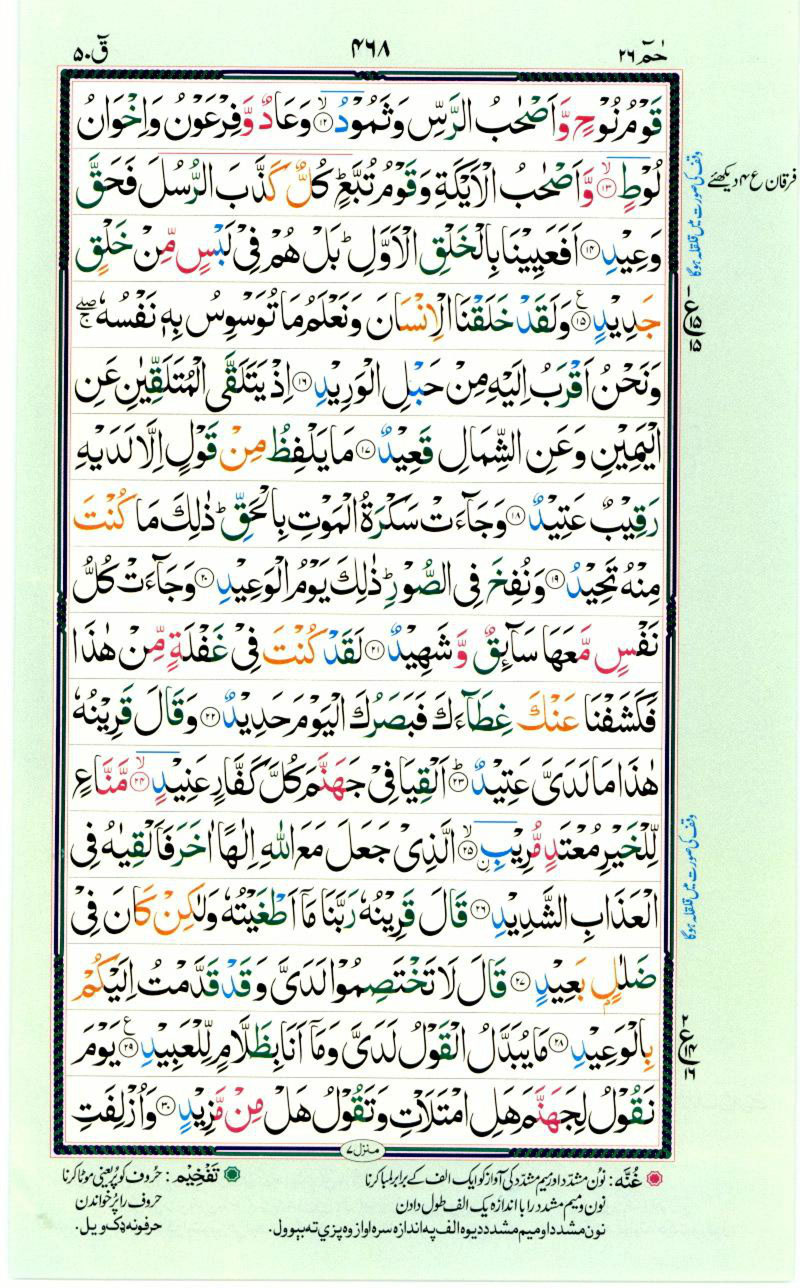 حٰمٓ ٢٦
٤٦٨
قٓ ٥٠
قَوْمُ نُوْحٍ وَّاَصْحٰبُ الرَّسِّ وَثَمُوْدُۙ‏﴿۱۲﴾ وَعَادٌ وَّفِرْعَوْنُ وَاِخْوَانُ
لُوْطٍۙ‏﴿۱۳﴾ وَّاَصْحٰبُ الْاَيْكَةِ وَقَوْمُ تُبَّعٍؕ كُلٌّ كَذَّبَ الرُّسُلَ فَحَقَّ
وَعِيْدِ‏﴿۱۴﴾ اَفَعَيِيْنَا بِالْخَلْقِ الْاَوَّلِؕ بَلْ هُمْ فِىْ لَبْسٍ مِّنْ خَلْقٍ
جَدِيْدٍ‏﴿۱۵﴾ وَلَقَدْ خَلَقْنَا الْاِنْسَانَ وَنَعْلَمُ مَا تُوَسْوِسُ بِهٖ نَفْسُهٗ ۖۚ
وَنَحْنُ اَقْرَبُ اِلَيْهِ مِنْ حَبْلِ الْوَرِيْدِ‏﴿۱۶﴾ اِذْ يَتَلَقَّى الْمُتَلَقِّيٰنِ عَنِ
الْيَمِيْنِ وَعَنِ الشِّمَالِ قَعِيْدٌ‏﴿۱۷﴾ مَا يَلْفِظُ مِنْ قَوْلٍ اِلَّا لَدَيْهِ
رَقِيْبٌ عَتِيْدٌ‏﴿۱۸﴾ وَجَآءَتْ سَكْرَةُ الْمَوْتِ بِالْحَقِّؕ ذٰلِكَ مَا كُنْتَ
مِنْهُ تَحِيْدُ‏﴿۱۹﴾ وَنُفِخَ فِى الصُّوْرِؕ ذٰلِكَ يَوْمُ الْوَعِيْدِ‏﴿۲۰﴾ وَجَآءَتْ كُلُّ
نَفْسٍ مَّعَهَا سَآئِقٌ وَّشَهِيْدٌ‏﴿۲۱﴾ لَقَدْ كُنْتَ فِىْ غَفْلَةٍ مِّنْ هٰذَا
فَكَشَفْنَا عَنْكَ غِطَآءَكَ فَبَصَرُكَ الْيَوْمَ حَدِيْدٌ‏﴿۲۲﴾ وَقَالَ قَرِيْنُهٗ
هٰذَا مَا لَدَىَّ عَتِيْدٌؕ‏﴿۲۳﴾ اَلْقِيَا فِىْ جَهَنَّمَ كُلَّ كَفَّارٍ عَنِيْدٍۙ‏﴿۲۴﴾ مَّنَّاعٍ
لِّلْخَيْرِ مُعْتَدٍ مُّرِيْبِۙ‏ۨ﴿۲۵﴾ الَّذِىْ جَعَلَ مَعَ اللّٰهِ اِلٰهًا اٰخَرَ فَاَلْقِيٰهُ فِى
الْعَذَابِ الشَّدِيْدِ‏﴿۲۶﴾ قَالَ قَرِيْنُهٗ رَبَّنَا مَاۤ اَطْغَيْتُهٗ وَلٰكِنْ كَانَ فِىْ
ضَلٰلٍۢ بَعِيْدٍ‏﴿۲۷﴾ قَالَ لَا تَخْتَصِمُوْا لَدَىَّ وَقَدْ قَدَّمْتُ اِلَيْكُمْ
بِالْوَعِيْدِ‏﴿۲۸﴾ مَا يُبَدَّلُ الْقَوْلُ لَدَىَّ وَمَاۤ اَنَا بِظَلَّامٍ لِّلْعَبِيْدِ‏﴿۲۹﴾ يَوْمَ
نَقُوْلُ لِجَهَنَّمَ هَلِ امْتَلَاْتِ وَتَقُوْلُ هَلْ مِنْ مَّزِيْدٍ‏﴿۳۰﴾ وَاُزْلِفَتِ
فرقان ع ۴ دیکھئے
وقف کی صورت میں قلقلہ ہوگا
وقف کی صورت میں قلقلہ ہوگا
منزل ٧
غُنَّه: نون مشدد اور میم مشدد کی آواز کو ایک الف کے برابر لمبا کرنا
نون و میم مشدد را با اندازہ یک الف طول دادن
نون مشدد او میم مشدد دیوه الف په اندازه سره اواز وه پزې ته بېوول.
تَفْخِيْم: حروف کو پُر یعنی موٹا کرنا
حروف را پُر خواندن
حرفونه ډک ویل.